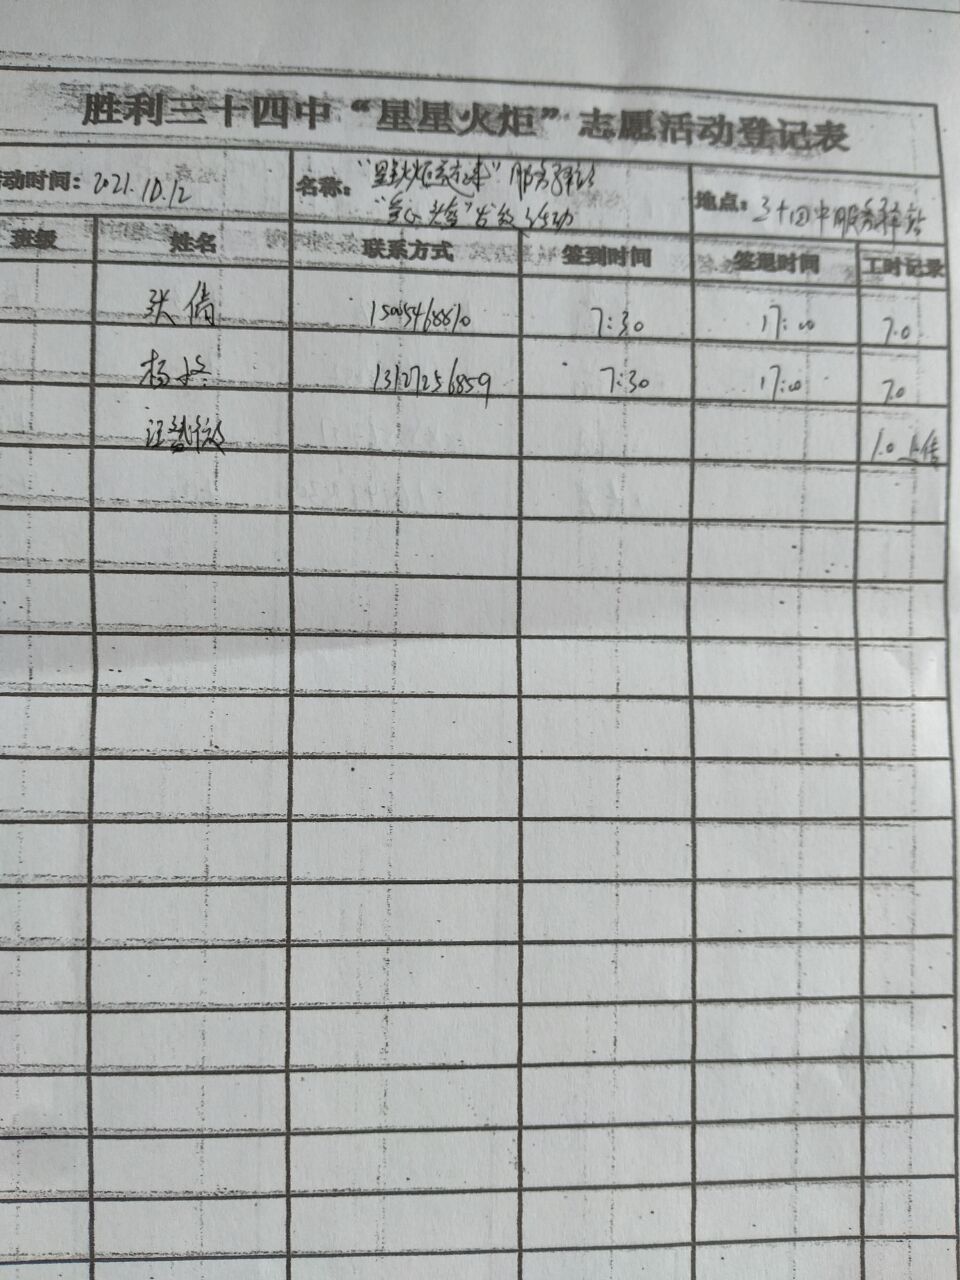 胜利三十四中“星星火炬”志愿活动登记表
动时间：2021.10.12 名称：“星星火炬 服务驿站 地点：三十四中服务驿站
活动
班级 姓名 联系方式 签到时间 签退时间 工时记录
张倩 15005468810 7:30 17:00 7.0
杨 13127256859 7:30 17:00 7.0
汪 1.0 上传